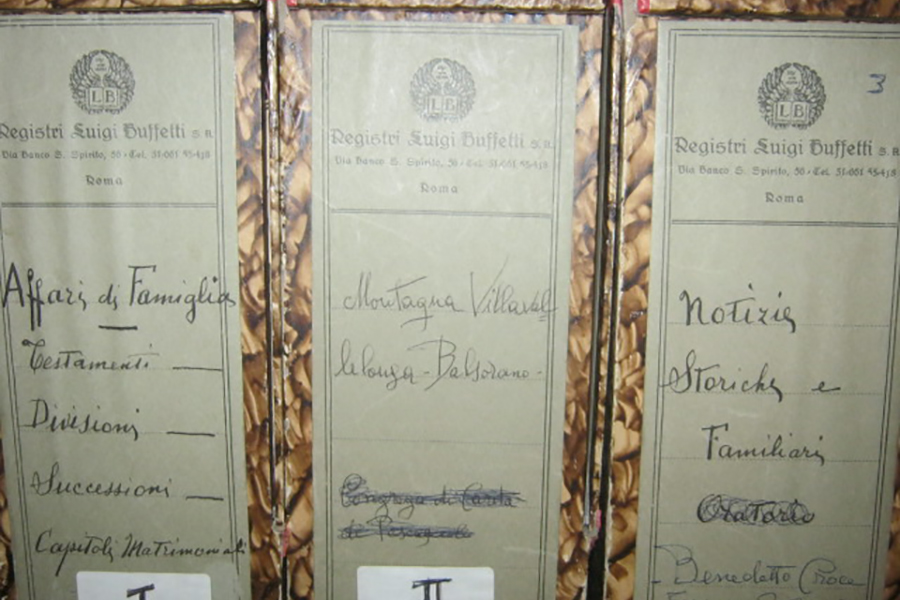 LB
Registri Luigi Buffetti S. A.
Via Banco S. Spirito, 56 - Tel. 51-061 55-418
Roma
Affari di Famiglia
Testamenti
Divisioni
Successioni
Capitoli Matrimoniali
I
LB
Registri Luigi Buffetti S. A.
Via Banco S. Spirito, 56 - Tel. 51-061 55-418
Roma
Montagna Villaval
lelonga - Balsorano -
Congrega di Carità
di
II
3
LB
Registri Luigi Buffetti S. A.
Via Banco S. Spirito, 56 - Tel. 51-061 55-418
Roma
Notizie
Storiche e
Familiari
Oratorio
Benedetto Croce